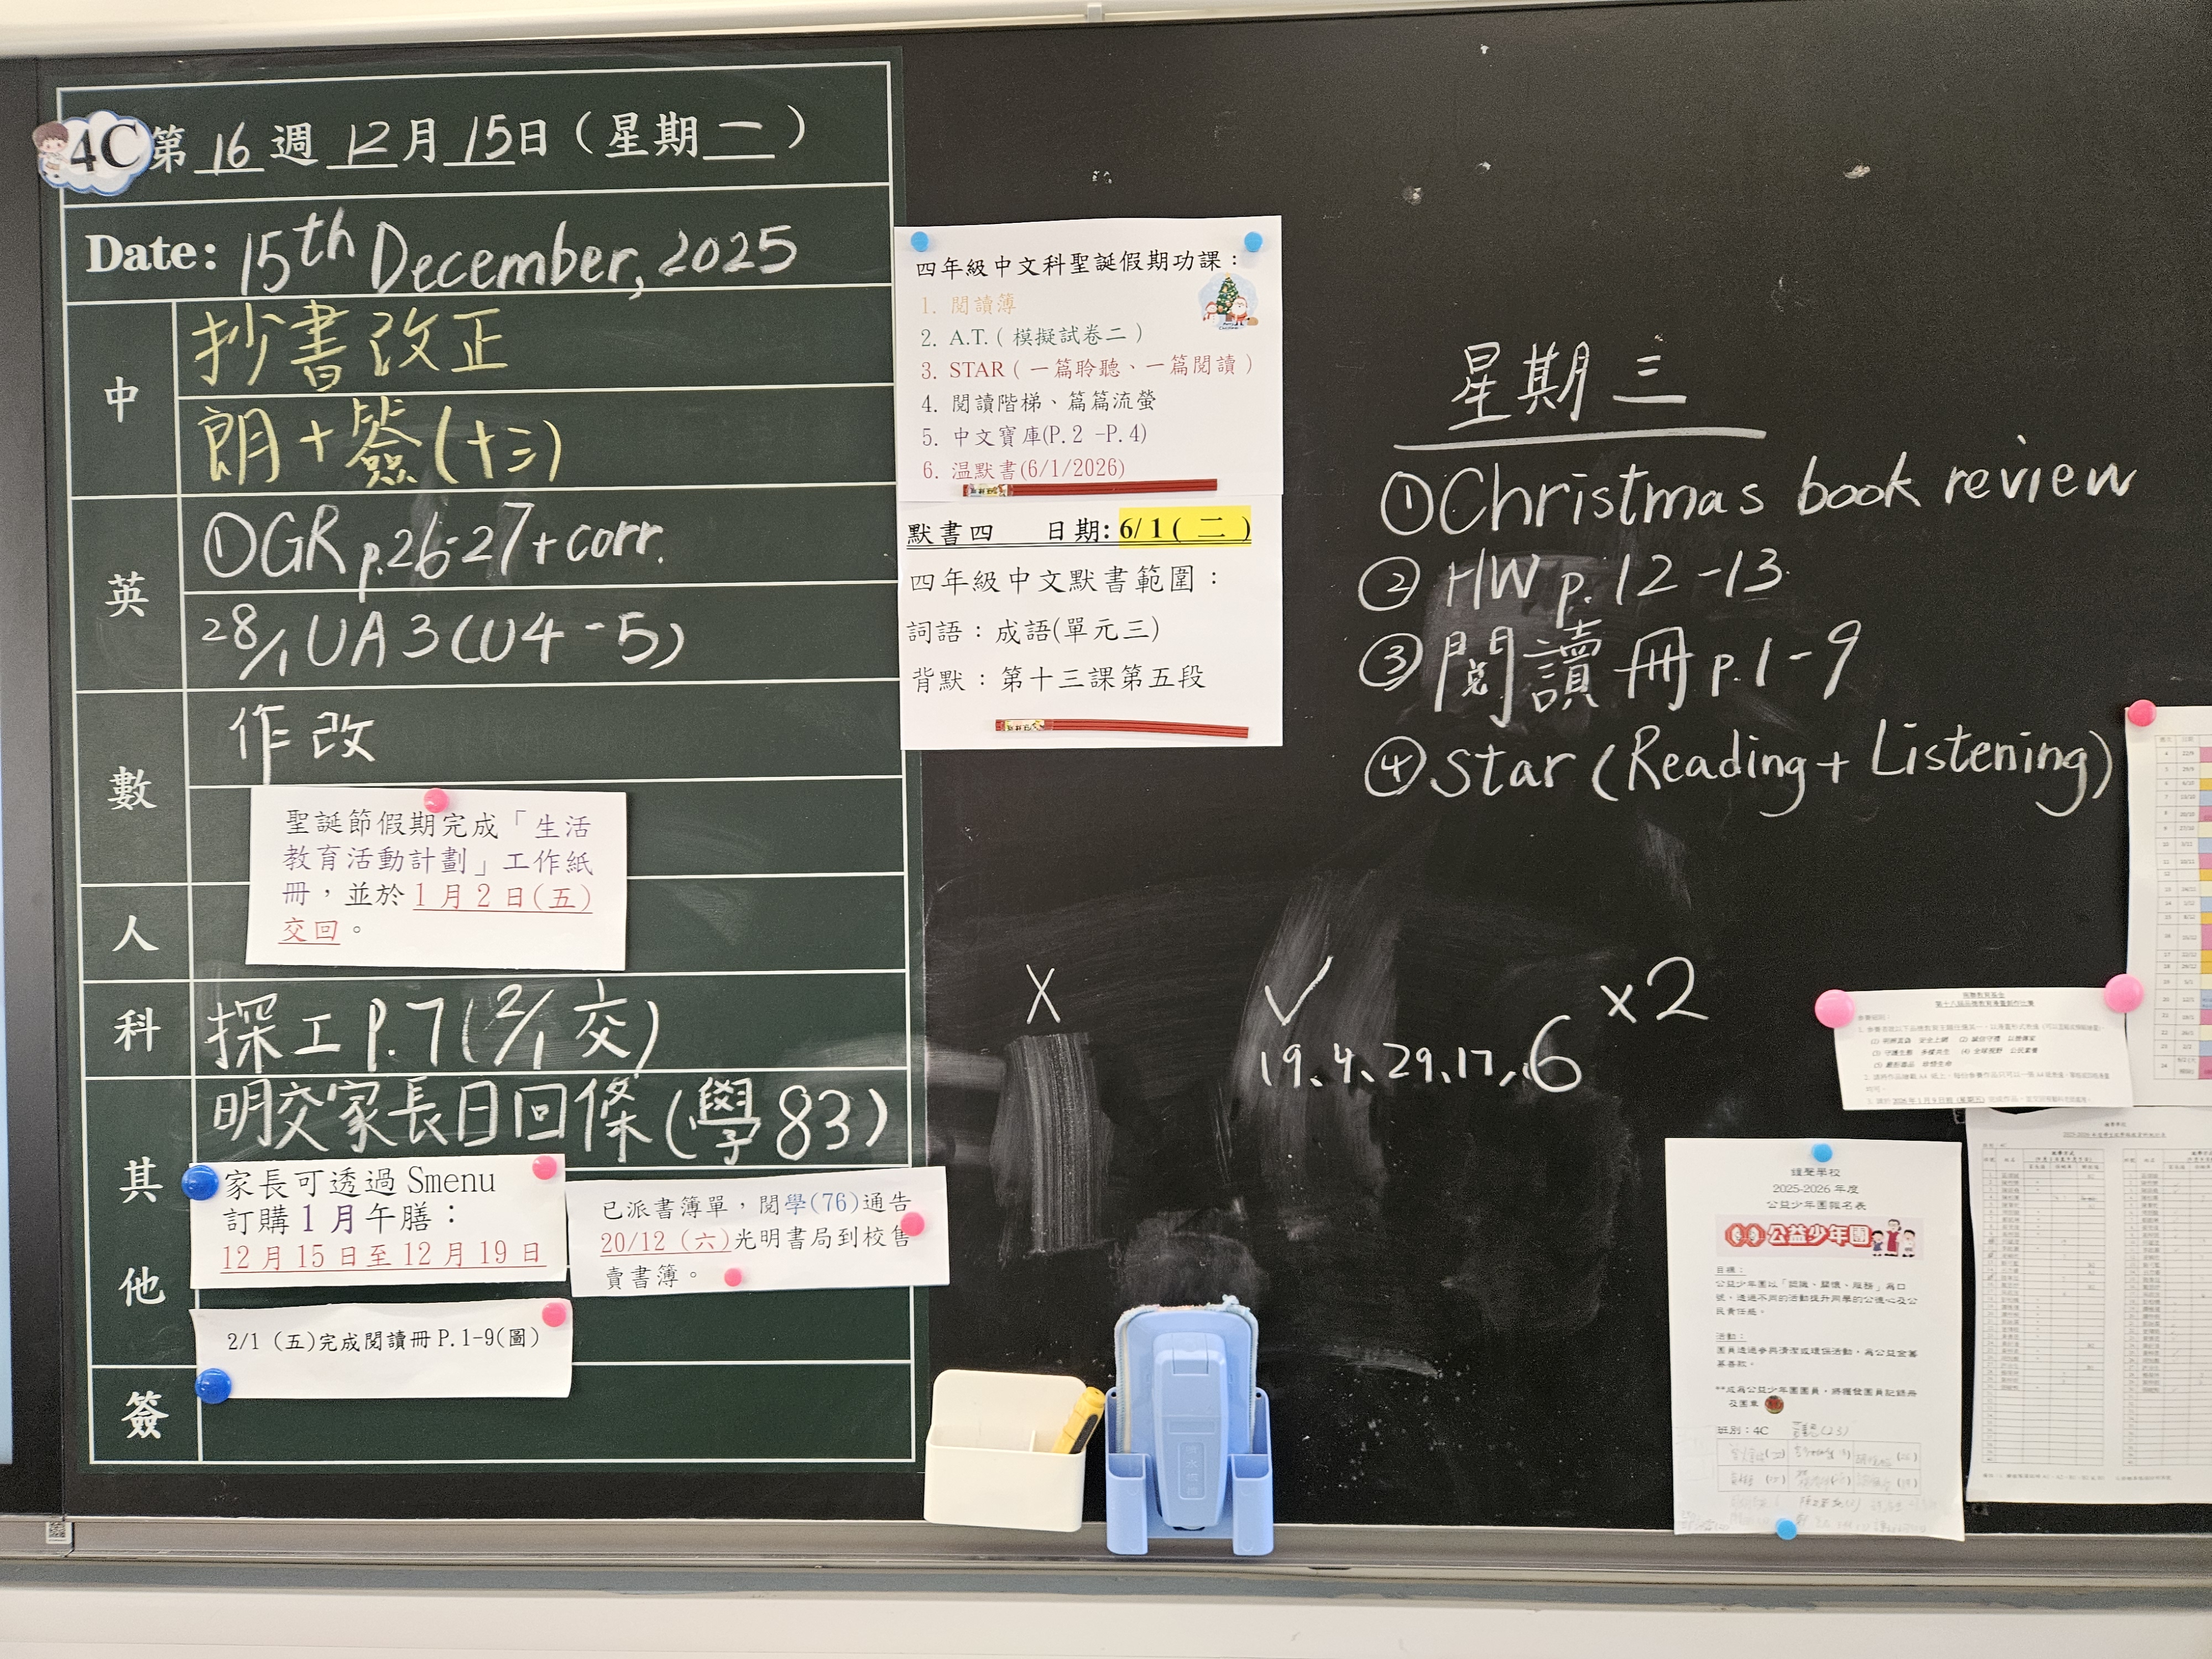 4C 第 16 週 12 月 15 日（星期 一）
Date: 15th December, 2025
中
抄書改正
朗+簽(十三)
英
①GR p.26-27+corr.
28/1 UA3(U4-5)
數
作改
聖誕節假期完成「生活
教育活動計劃」工作紙
冊，並於1月2日(五)
交回。
人
科
探工P.7(2/1交)
其他
明交家長日回條(學83)
家長可透過 Smenu
訂購1月午膳：
12月15日至12月19日
已派書簿單，閱學(76)通告
20/12（六)光明書局到校售
賣書簿。
2/1 (五)完成閱讀冊P.1-9(圖)
簽
四年級中文科聖誕假期功課：
1. 閱讀簿
2. A.T.（模擬試卷二）
3. STAR（一篇聆聽、一篇閱讀）
4. 閱讀階梯、篇篇流螢
5. 中文寶庫(P.2 -P.4)
6. 温默書(6/1/2026)
默書四 日期: 6/1(二)
四年級中文默書範圍：
詞語：成語(單元三)
背默：第十三課第五段
星期三
①Christmas book review
② HW p.12-13
③ 閱讀冊 p.1-9
④ Star (Reading+Listening)
X ✓ ×2
19、4、29、17、6
2025-2026 年度
公益少年團報名表
公益少年團
目標：
公益少年團以「認識、關懷、服務」為口
號，透過不同的活動提升同學的公德心及公
民責任感。
活動：
團員透過參與清潔或環保活動，為公益金籌
募善款。
**成為公益少年團團員，將獲發團員記錄冊
及團章
班別：4C